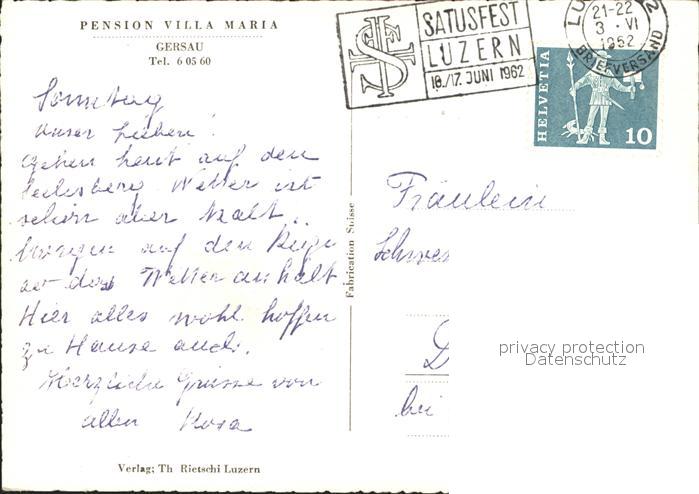 PENSION VILLA MARIA
GERSAU
Tel. 6 05 60
SATUSFEST
LUZERN
16./17. JUNI 1962
LU
2
21-22
3. VI
1962
BRIEFVERSAND
HELVETIA
10
Sonntag
unser Lieben!
Gehen heut auf den
Seelisberg Wetter ist
schön aber kalt.
Morgen auf den Rigi
ob das Wetter anhält
Hier alles wohl hoffen
zu Hause auch.
Herzliche Grüsse von
allen Rosa
Fabrication Suisse
Fräulein
Schwes
D
bei
privacy protection
Datenschutz
Verlag; Th Rietschi Luzern